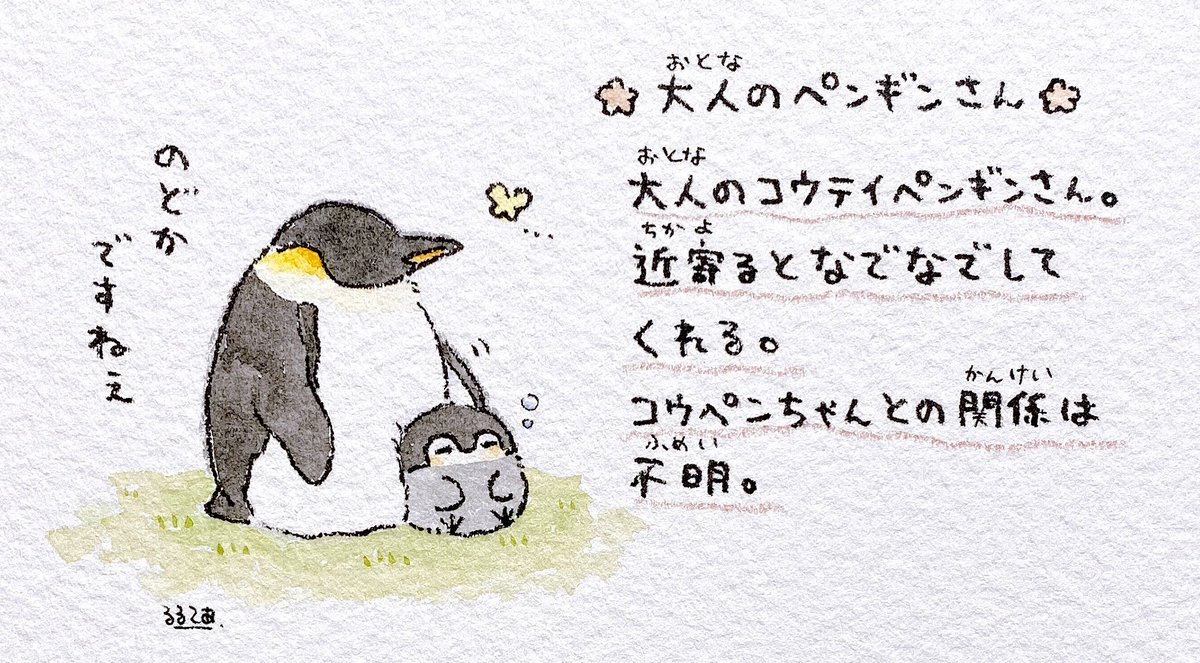 大人のペンギンさん
おとな
大人のコウテイペンギンさん。
おとな
近寄るとなでなでして
ちかよ
くれる。
コウペンちゃんとの関係は
かんけい
不明。
ふめい
のどか
ですねぇ
るるてあ